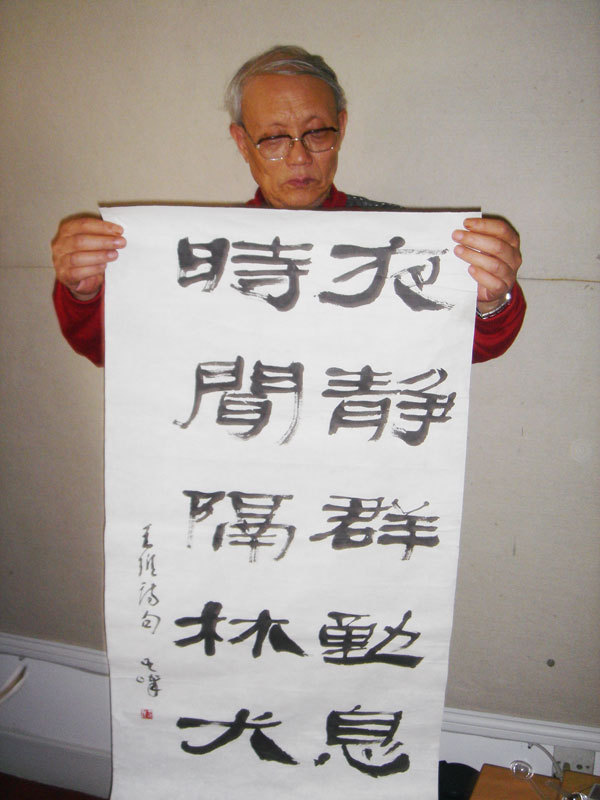 夜靜群動息
時聞隔林犬
王維詩句